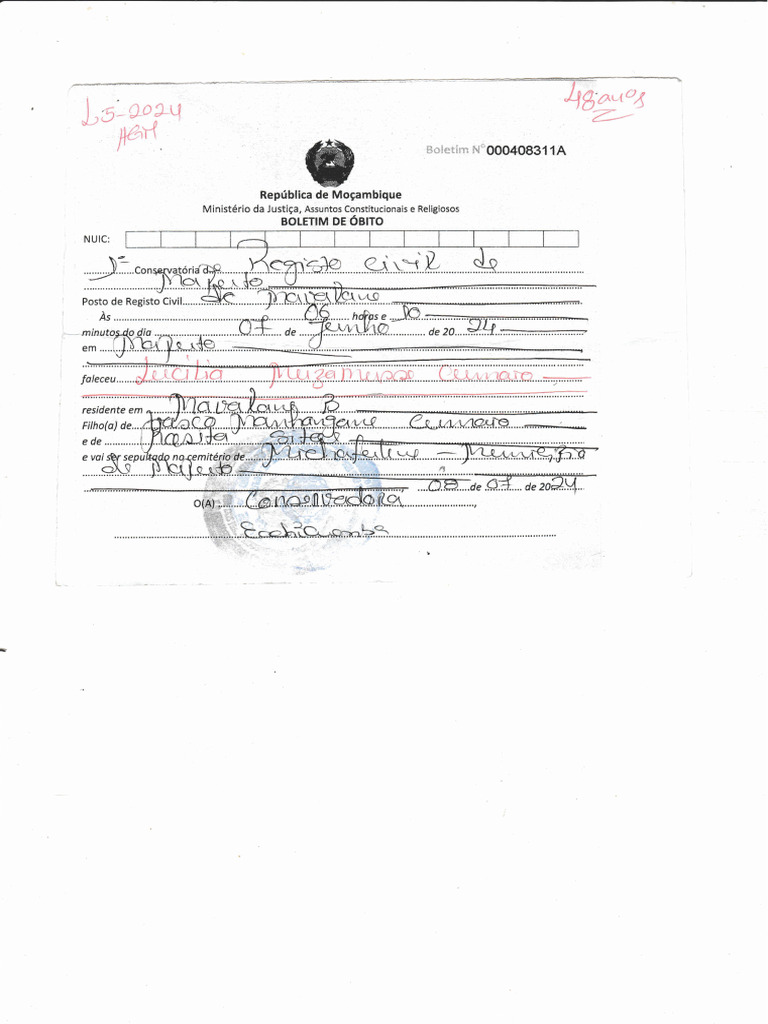 L5-2024
HGM
48 anos
Boletim Nº 000408311A
República de Moçambique
Ministério da Justiça, Assuntos Constitucionais e Religiosos
BOLETIM DE ÓBITO
NUIC:
1ª Conservatória do Registo Civil de
Maputo
Posto de Registo Civil de Mavalane
Às 06 horas e 10
minutos do dia 07 de Junho de 2024
em Maputo
faleceu Lucilia Muzamusso Cumaio
residente em Mavalane B
Filho(a) de Vasco Manhangane Cumaio
e de Rasita Sitoe
e vai ser sepultado no cemitério de Michafutene - Município
de Maputo
08 de 07 de 2024
O(A) Conservadora